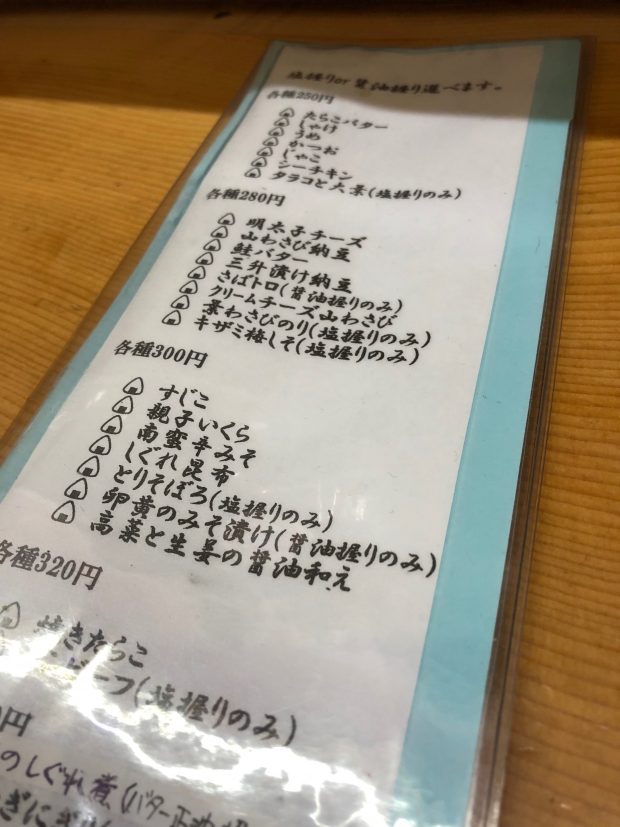 塩握りor醤油握り選べます。
各種250円
たらこバター
しゃけ
うめ
かつお
じゃこ
シーチキン
タラコと大葉(塩握りのみ)
各種280円
明太子チーズ
山わさび納豆
鮭バター
三升漬け納豆
さばトロ(醤油握りのみ)
クリームチーズ山わさび
葉わさびのり(塩握りのみ)
キザミ梅しそ(塩握りのみ)
各種300円
すじこ
親子いくら
南蛮辛みそ
しぐれ昆布
とりそぼろ(塩握りのみ)
卵黄のみそ漬け(醤油握りのみ)
高菜と生姜の醤油和え
各種320円
焼きたらこ
ーフ(塩握りのみ)
0円
のしぐれ煮(バター正油
ぎにぎり